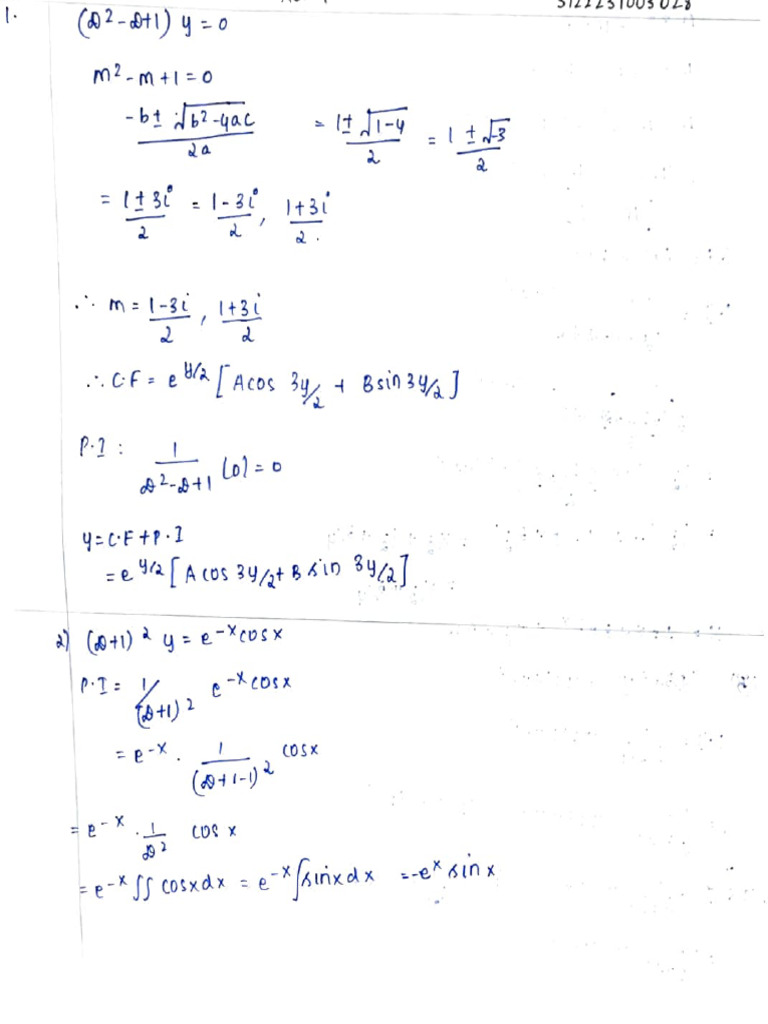 3122231003028
1. (D²-D+1) y = 0
m²-m+1=0
-b± √b²-4ac / 2a = 1± √1-4 / 2 = 1 ± √-3 / 2
= 1±3i / 2 = 1-3i / 2 , 1+3i / 2 .
∴ m = 1-3i / 2 , 1+3i / 2
∴ C.F = e^y/2 [ A cos 3y/2 + B sin 3y/2 ]
P.I : 1 / D²-D+1 (0) = 0
y = C.F + P.I
= e^y/2 [ A cos 3y/2 + B sin 3y/2 ]
2) (D+1)² y = e^-x cos x
P.I = 1/(D+1)² e^-x cos x
= e^-x . 1 / (D+1-1)² cos x
= e^-x . 1 / D² cos x
= e^-x ∫∫ cosxdx = e^-x ∫sinxdx = -e^x sin x